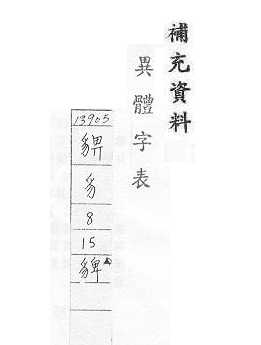 補充資料
異體字表
13905
豸
8
15
貏